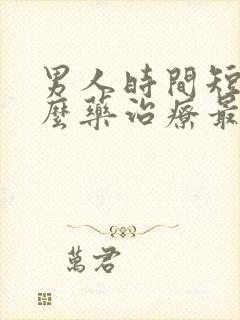 男人時間短
麼藥治療最
萬君